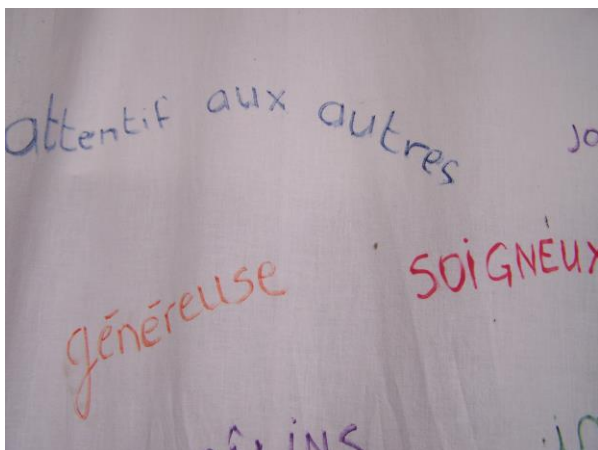 attentif aux autres
généreuse
SOiGNEUX